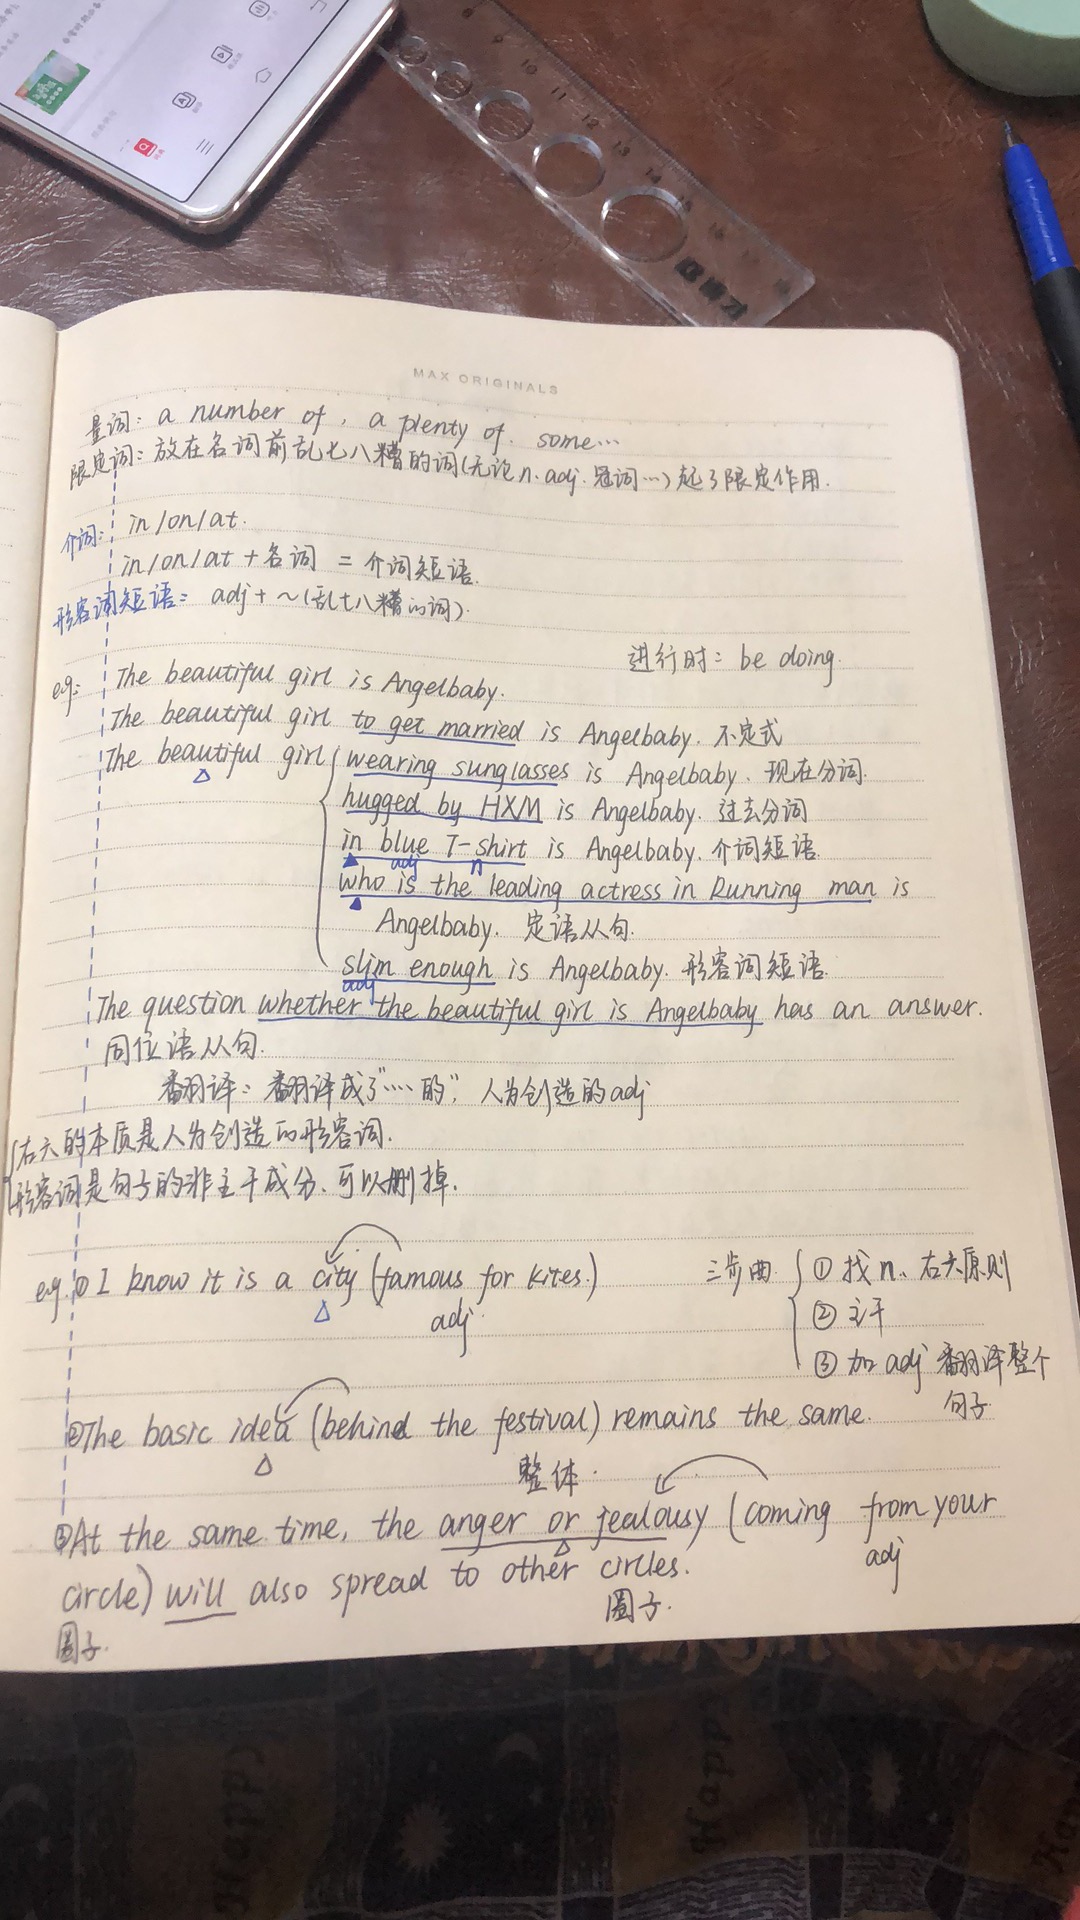 8 9 10 11 12 13 14 15
MAX ORIGINALS
量词: a number of, a plenty of. some…
限定词: 放在名词前乱七八糟的词(无论n.adj.冠词…)起了限定作用.
介词: in/on/at.
in/on/at + 名词 = 介词短语.
形容词短语: adj + ~(乱七八糟的词).
进行时: be doing.
eg: The beautiful girl is Angelbaby.
The beautiful girl to get married is Angelbaby. 不定式
The beautiful girl wearing sunglasses is Angelbaby. 现在分词.
hugged by HXM is Angelbaby. 过去分词
in blue T-shirt is Angelbaby. 介词短语.
adj n
who is the leading actress in Running man is
Angelbaby. 定语从句.
slim enough is Angelbaby. 形容词短语.
adj
The question whether the beautiful girl is Angelbaby has an answer.
同位语从句.
翻译: 翻译成了"……的", 人为创造的adj
右六的本质是人为创造的形容词.
形容词是句子的非主干成分、可以删掉.
eg. ① I know it is a city (famous for kites.)
adj
三步曲 ① 找n、右六原则
② 主干
③ 加 adj 翻译整个
句子
②The basic idea (behind the festival) remains the same.
整体.
③At the same time, the anger or jealousy (coming from your
adj
circle) will also spread to other circles.
圈子. 圈子.
Happy
Happy
Happ